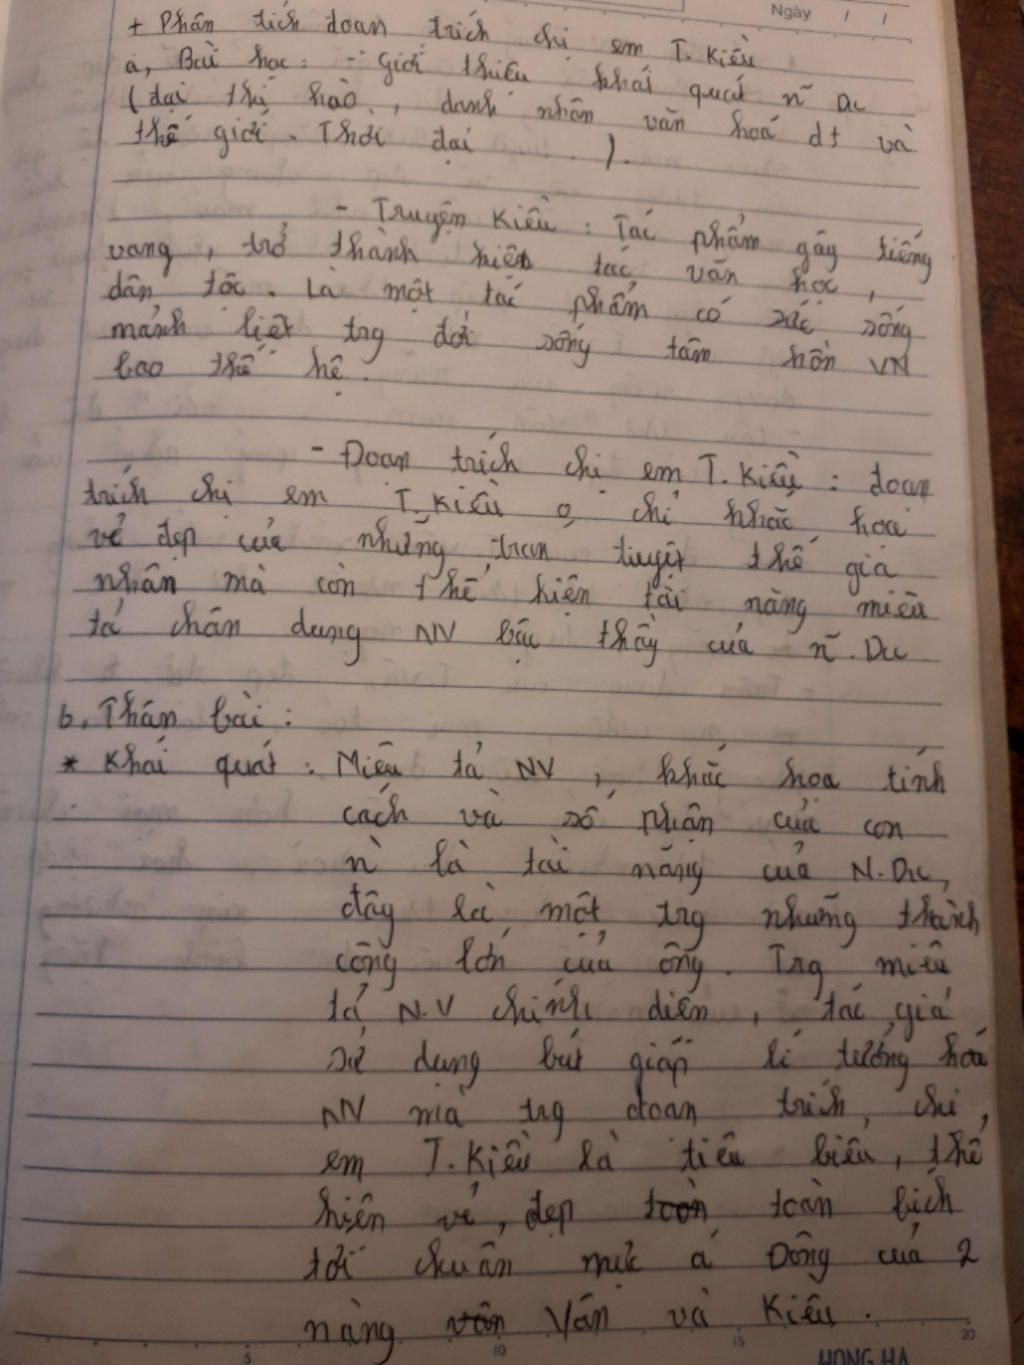 Ngày / /
+ Phân tích đoạn trích chị em T. Kiều
a, Bài học : - Giới thiệu khái quát n~ Du
(đại thi hào, danh nhân văn hoá dt và
thế giới. Thời đại ...).
- Truyện Kiều : Tác phẩm gây tiếng
vang, trở thành kiệt tác văn học,
dân tộc. Là một tác phẩm có sức sống
mãnh liệt trg đời sống tâm hồn VN
bao thế hệ.
- Đoạn trích chị em T. Kiều : đoạn
trích chị em T. Kiều o chỉ khắc hoạ
vẻ đẹp của những trang tuyệt thế giai
nhân mà còn thể hiện tài năng miêu
tả chân dung NV bậc thầy của n~. Du
b, Thân bài :
* Khái quát : Miêu tả NV, khắc hoạ tính
cách và số phận của con
n` là tài năng của N. Du,
đây là một trg những thành
công lớn của ông. Trg miêu
tả N.V chính diện, tác giả
sử dụng bút giáp lí tưởng hoá
NV mà trg đoạn trích chị
em T. Kiều là tiêu biểu, thể
hiện vẻ đẹp toàn bích
tới chuẩn mực á Đông của 2
nàng Vân và Kiều.
5 10 15 20
HONG HA